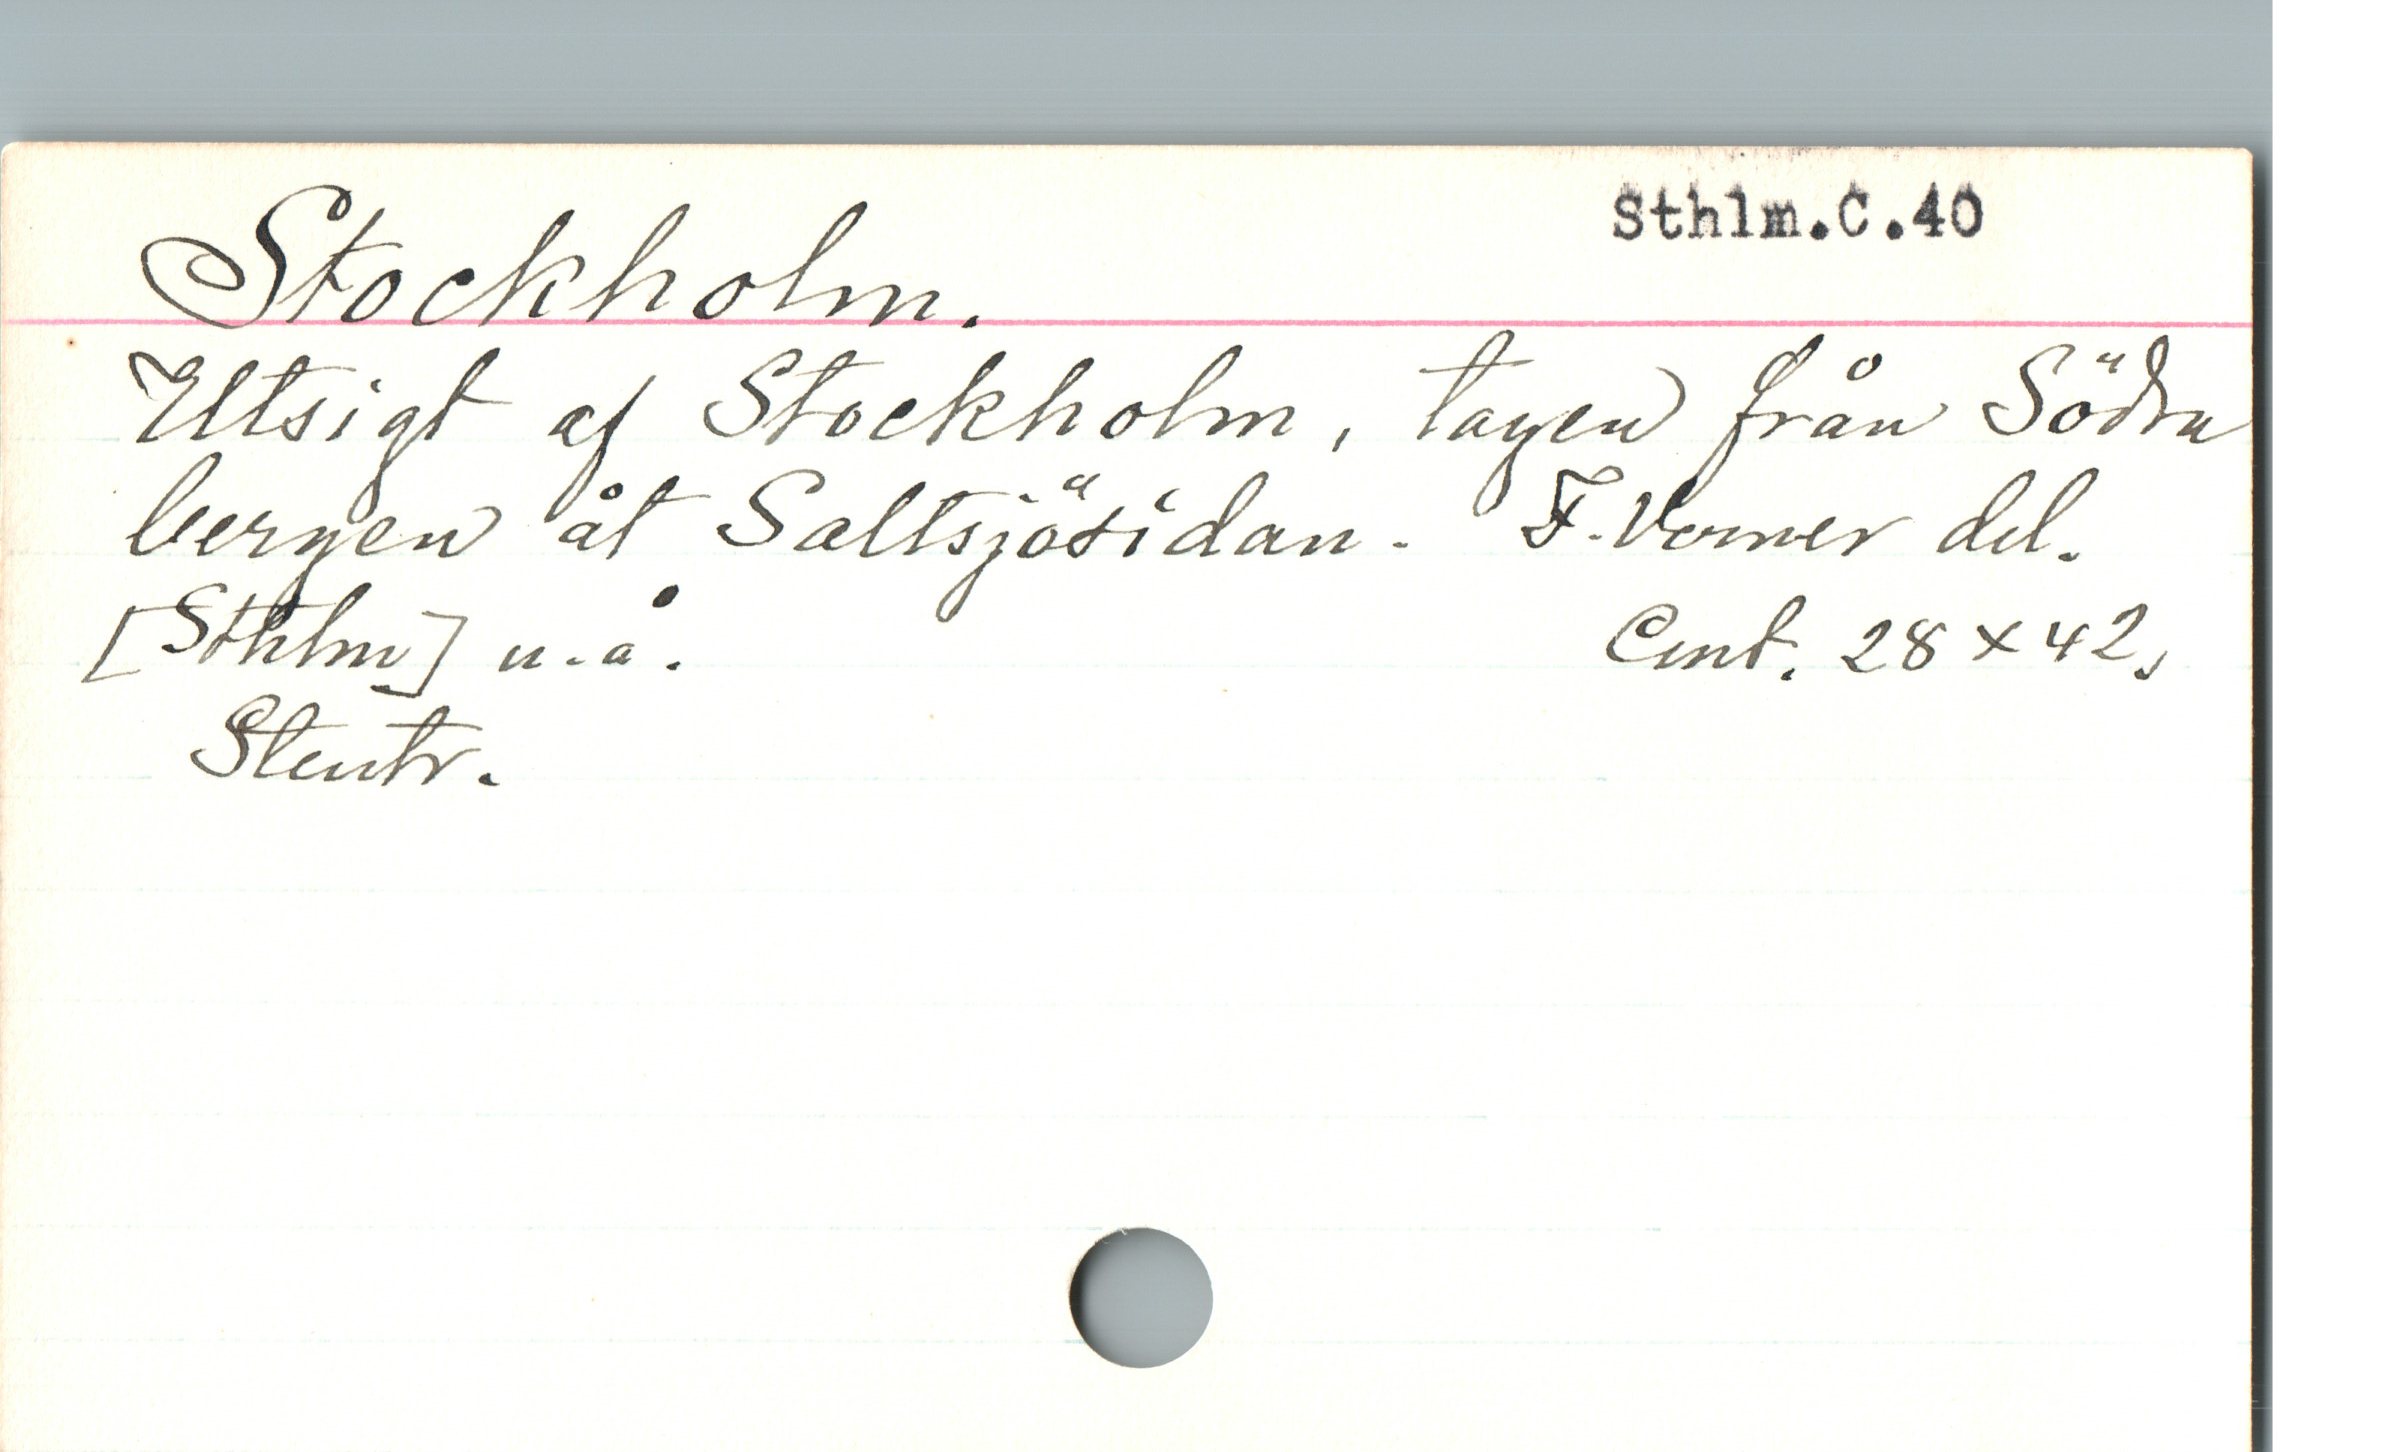 Sthlm.C.40
Stockholm.
Utsigt af Stockholm, tagen från Södra
bergen åt Saltsjösidan. F. Verner del.
[Sthlm] u.å. Cmt. 28 x 42,
Stentr.